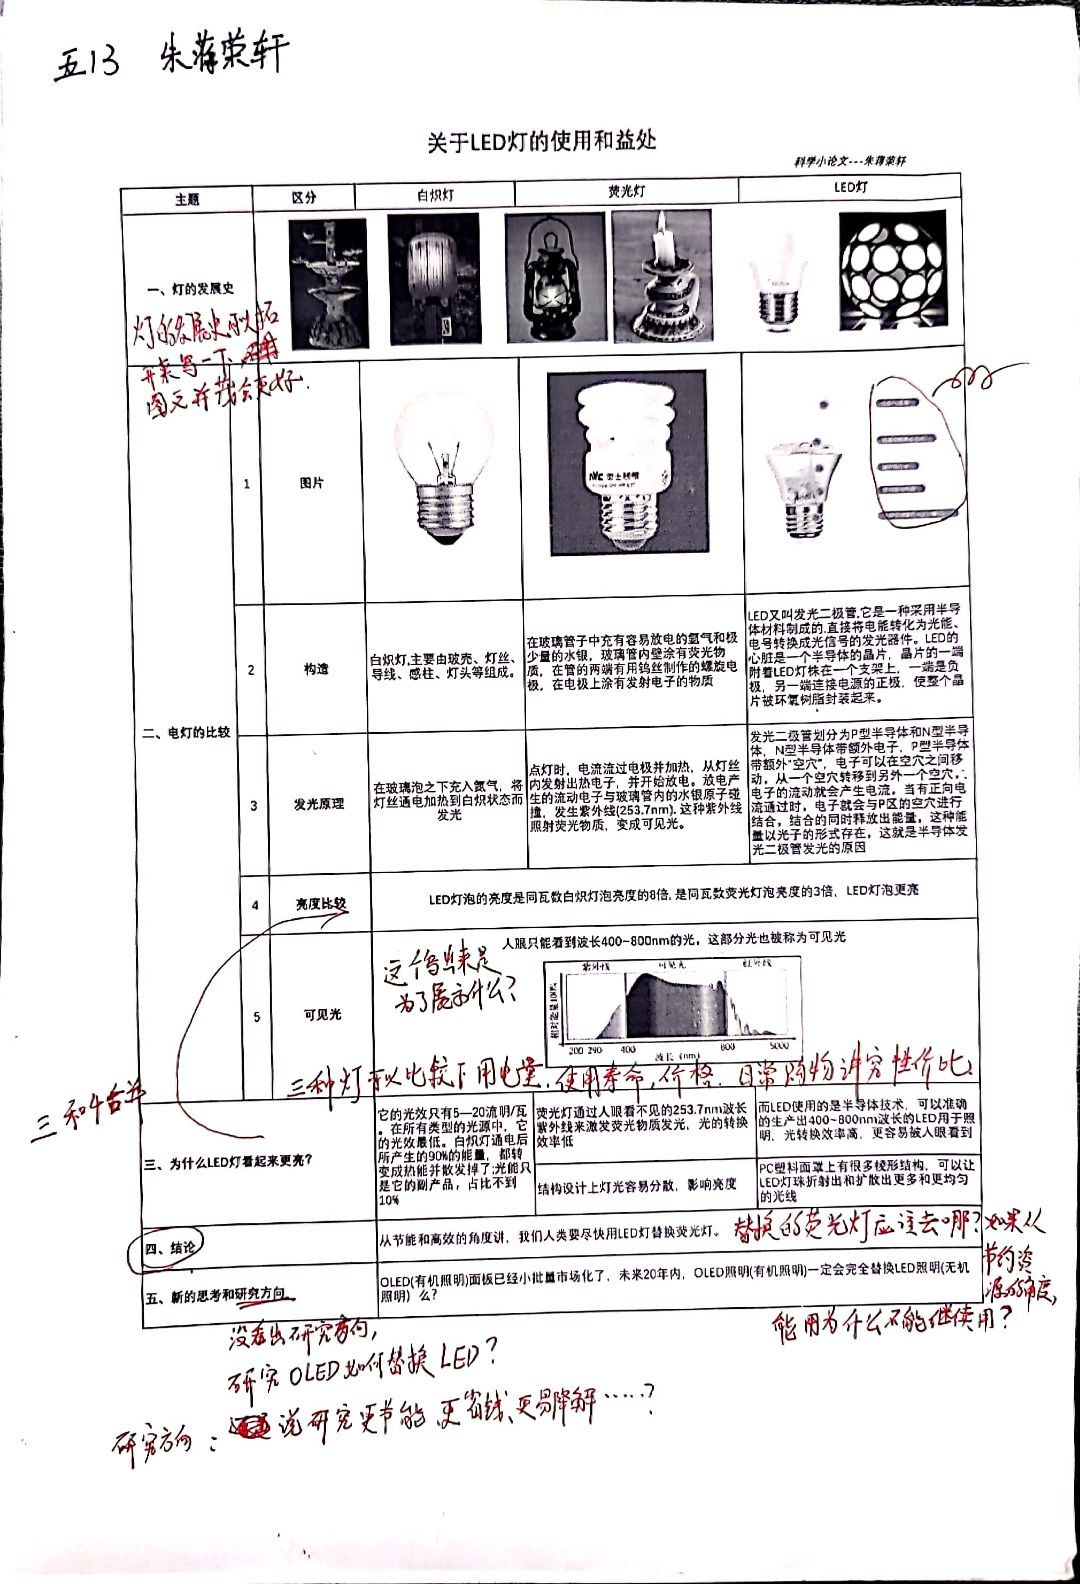 五13 朱蒋荣轩
关于LED灯的使用和益处
科学小论文---朱蒋荣轩
主题 区分 白炽灯 荧光灯 LED灯
一、灯的发展史
灯的发展史可以拓
开来写一下,
图文并茂会更好.
1 图片
二、电灯的比较
2 构造
白炽灯,主要由玻壳、灯丝、
导线、感柱、灯头等组成。
在玻璃管子中充有容易放电的氩气和极
少量的水银，玻璃管内壁涂有荧光物
质，在管的两端有用钨丝制作的螺旋电
极，在电极上涂有发射电子的物质
LED又叫发光二极管.它是一种采用半导
体材料制成的.直接将电能转化为光能、
电号转换成光信号的发光器件。LED的
心脏是一个半导体的晶片，晶片的一端
附着LED灯株在一个支架上，一端是负
极，另一端连接电源的正极，使整个晶
片被环氧树脂封装起来。
3 发光原理
在玻璃泡之下充入氮气，将
灯丝通电加热到白炽状态而
发光
点灯时，电流流过电极并加热，从灯丝
内发射出热电子，并开始放电。放电产
生的流动电子与玻璃管内的水银原子碰
撞，发生紫外线(253.7nm).这种紫外线
照射荧光物质，变成可见光。
发光二极管划分为P型半导体和N型半导
体，N型半导体带额外电子，P型半导体
带额外"空穴"，电子可以在空穴之间移
动，从一个空穴转移到另外一个空穴。
电子的流动就会产生电流。当有正向电
流通过时，电子就会与P区的空穴进行
结合，结合的同时释放出能量，这种能
量以光子的形式存在，这就是半导体发
光二极管发光的原因
4 亮度比较
LED灯泡的亮度是同瓦数白炽灯泡亮度的8倍,是同瓦数荧光灯泡亮度的3倍，LED灯泡更亮
5 可见光
人眼只能看到波长400~800nm的光，这部分光也被称为可见光
这个出来是
为了展示什么?
紫外线 可见光 红外线
相对能量100%
200 290 400 800 5000
波长 (nm)
三种灯可以比较下用电量,使用寿命,价格.日常购物讲究性价比.
三和4合并
三、为什么LED灯看起来更亮?
它的光效只有5—20流明/瓦
。在所有类型的光源中，它
的光效最低。白炽灯通电后
所产生的90%的能量，都转
变成热能并散发掉了;光能只
是它的副产品，占比不到
10%
荧光灯通过人眼看不见的253.7nm波长
紫外线来激发荧光物质发光，光的转换
效率低
而LED使用的是半导体技术，可以准确
的生产出400~800nm波长的LED用于照
明，光转换效率高，更容易被人眼看到
结构设计上灯光容易分散，影响亮度
PC塑料面罩上有很多棱形结构，可以让
LED灯珠折射出和扩散出更多和更均匀
的光线
四、结论
从节能和高效的角度讲，我们人类要尽快用LED灯替换荧光灯。
替换的荧光灯应该去哪?如果从
节约资
源的角度,
能用为什么不能继续用?
五、新的思考和研究方向
OLED(有机照明)面板已经小批量市场化了，未来20年内，OLED照明(有机照明)一定会完全替换LED照明(无机
照明）么?
没看出研究方向,
研究OLED如何替换LED?
研究方向: 说研究更节能、更省钱、更易降解……?